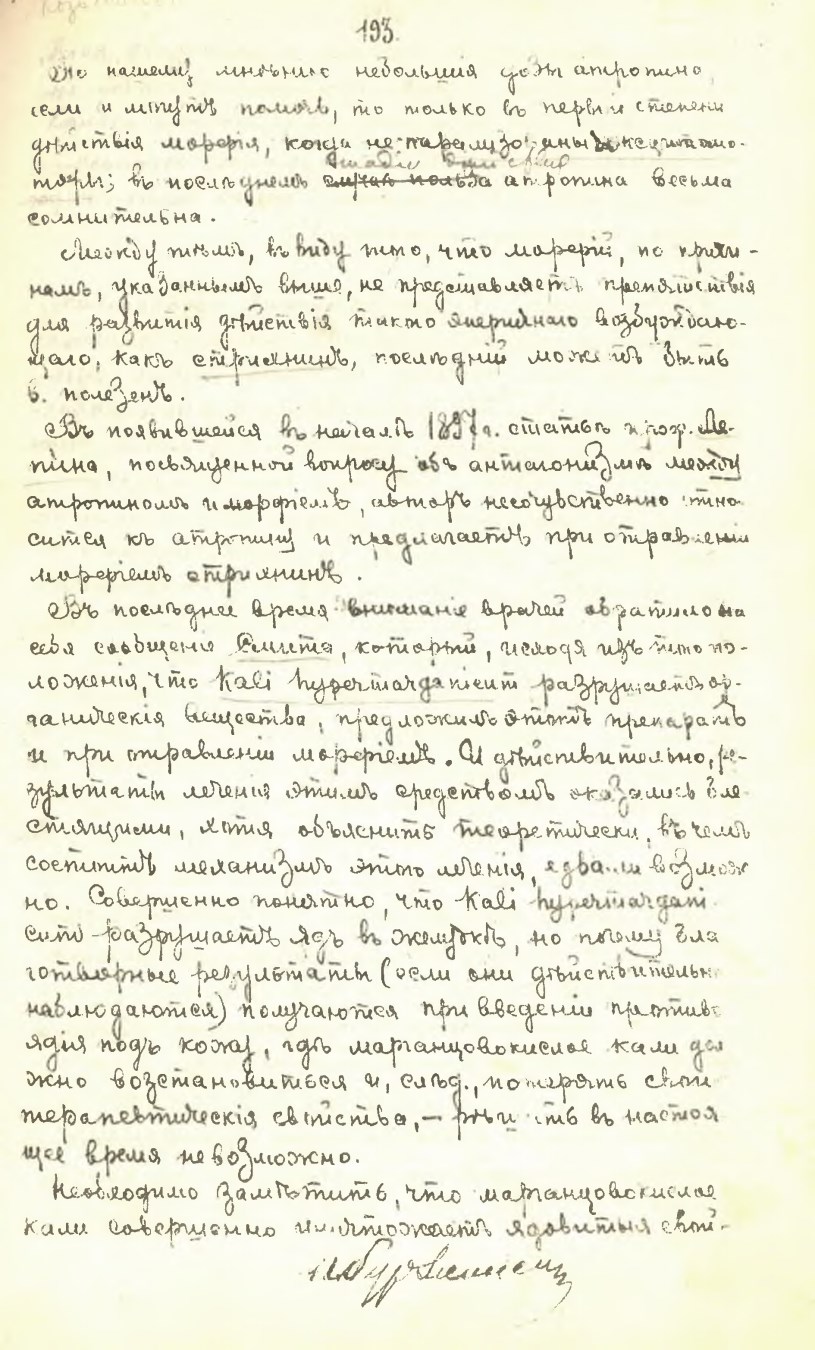 193
По нашему мнѣнию небольшия дозы атропина,
если и могутъ помочь, то только въ первой степени
дѣйствія морфія, когда не парализованы эксцитомо-
торы; въ послѣднемъ случаѣ польза атропина весьма
сомнительна.
Между тѣмъ, въ виду того, что морфій, по причи-
намъ, указаннымъ выше, не представляетъ препятствія
для развитія дѣйствія такого энергичнаго возбуждаю-
щаго, какъ стрихнинъ, послѣдній можетъ быть
б. полезенъ.
Въ появившейся въ началѣ 1897 г. статьѣ проф. Ле-
пина, посвященной вопросу объ антагонизмѣ между
атропиномъ и морфіемъ, авторъ несочувственно отно-
сится къ атропину и предлагаетъ при отравленіи
морфіемъ стрихнинъ.
Въ послѣднее время вниманіе врачей обратило на
себя сообщение, который, исходя изъ того по-
ложенія, что Kali hypermanganicum разрушаетъ ор-
ганическія вещества, предложилъ этотъ препаратъ
и при отравленіи морфіемъ. И дѣйствительно, ре-
зультаты леченія этимъ средствомъ оказались бле
стящими, хотя объяснить теоретически, въ чемъ
состоитъ механизмъ этого леченія, едва ли возмож
но. Совершенно понятно, что Kali hypermangani
cum разрушаетъ ядъ въ желудкѣ, но почему бла
готворные результаты (если они дѣйствительно
наблюдаются) получаются при введеніи противо
ядія подъ кожу, гдѣ марганцовокислое кали дол
жно возстановиться и, слѣд., потерять свои
терапевтическія свойства, — рѣшить въ настоя
щее время невозможно.
Необходимо замѣтить, что марганцовокислое
кали совершенно уничтожаетъ ядовитыя свой-